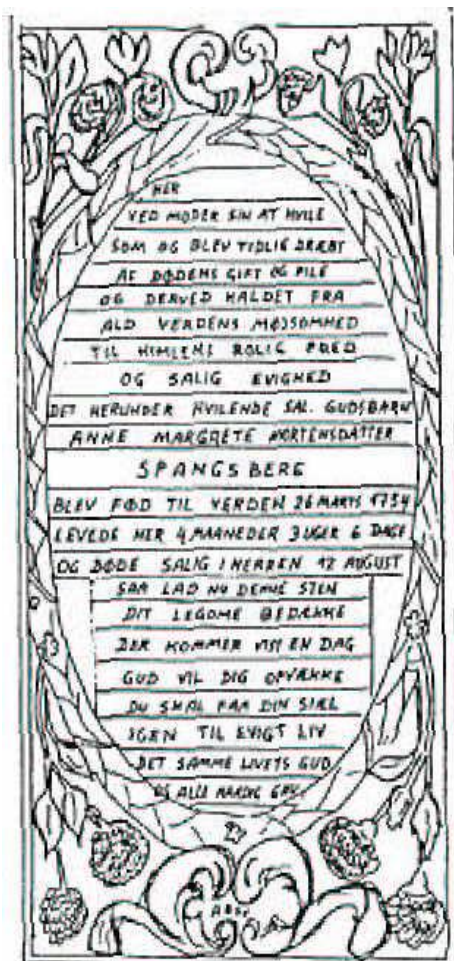 HER
VED MODER SIN AT HVILE
SOM OG BLEV TIDLIG DRÆBT
AF DØDENS GIFT OG PILE
OG DERVED KALDET FRA
ALD VERDENS MØJSOMHED
TIL HIMLENS ROLIG FRED
OG SALIG EVIGHED
DET HERUNDER HVILENDE SAL. GUDSBARN
ANNE MARGRETE MORTENSDATTER
SPANGSBERG
BLEV FØD TIL VERDEN 26 MARTS 1734
LEVEDE HER 4 MAANEDER 3 UGER 6 DAGE
OG DØDE SALIG I HERREN 12 AUGUST
SAA LAD NU DENNE STEN
DIT LEGOME BEDÆKKE
DER KOMMER VIST EN DAG
GUD VIL DIG OPVÆKKE
DU SKAL FAA DIN SIÆL
IGEN TIL EVIGT LIV
DET SAMME LIVETS GUD
OS ALLE